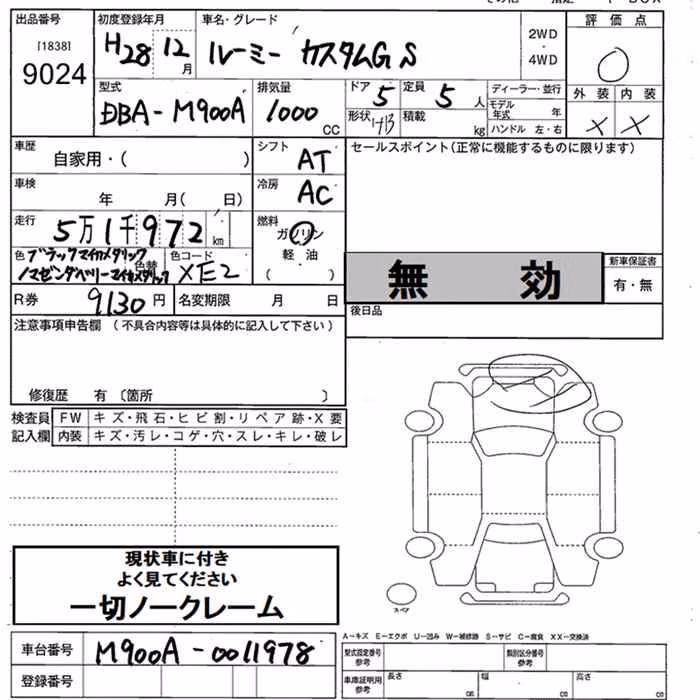 出品番号
[1838]
9024
初度登録年月
H28 12月
車名・グレード
ルーミー カスタムG S
2WD
・
4WD
評価点
0
型式
DBA-M900A
排気量
1000 CC
ドア 5
定員 5 人
形状
積載 kg
ディーラー・並行
モデル年式 年
ハンドル 左・右
外装 内装
X X
車歴
自家用・( )
シフト AT
セールスポイント(正常に機能するものに限ります)
車検
年 月( 日)
冷房 AC
走行
5万1千972 km
燃料
ガソリン
軽油
( )
色 ブラックマイカメタリック
マゼンダベリーマイカメタリック
色替
色コード
XE2
無 効
新車保証書
有・無
R券 9130円
名変期限 月 日
後日品
注意事項申告欄 (不具合内容等は具体的に記入して下さい)
修復歴 有 〔箇所 〕
検査員記入欄
FW キズ・飛石・ヒビ割・リペア跡・X要
内装 キズ・汚レ・コゲ・穴・スレ・キレ・破レ
現状車に付き
よく見てください
一切ノークレーム
スペア
A-キズ E-エクボ U-凹み W-補修跡 S-サビ C-腐食 XX-交換済
車台番号 M900A-0011978
登録番号
型式指定番号参考
類別区分番号参考
車庫証明用参考
長さ cm
幅 cm
高さ cm